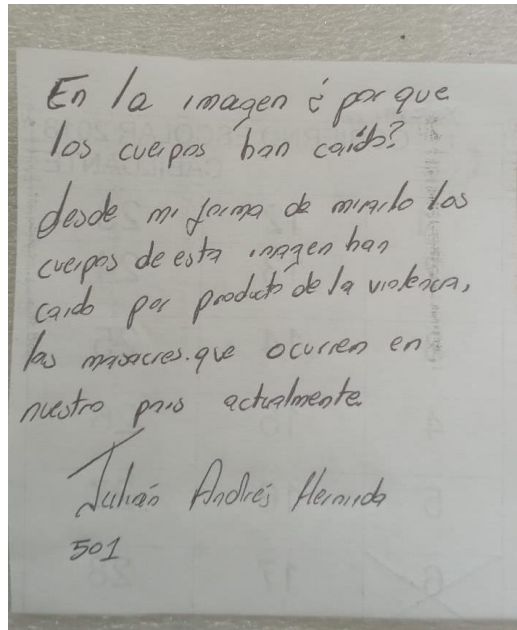 En la imagen ¿ por que
los cuerpos han caido?
desde mi forma de mirarlo los
cuerpos de esta imagen han
caido por producto de la violencia,
las masacres. que ocurren en
nuestro pais actualmente.
Julián Andrés
501